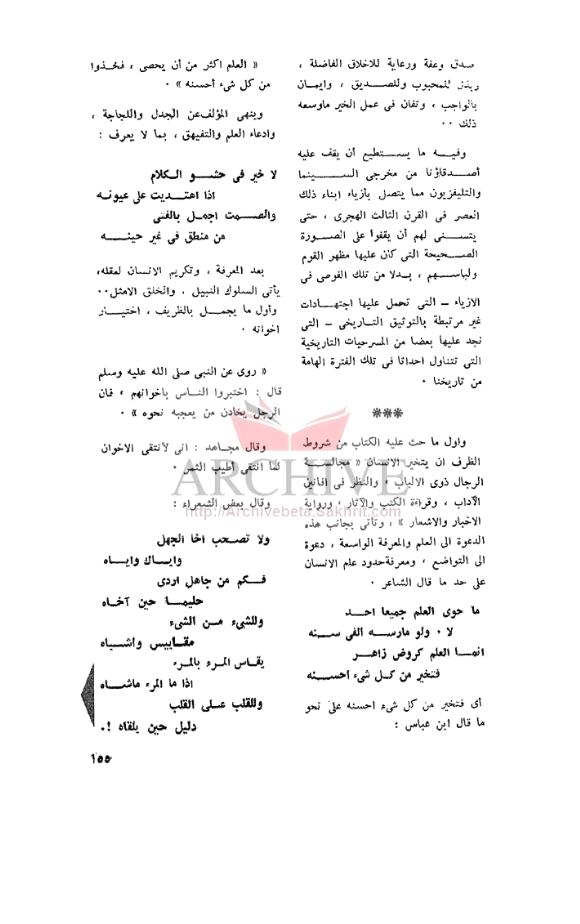 سدق وعفة ورعاية للاخلاق الفاضلة ،
للمحبوب وللصديق ، وايمان
بالواجب ، وتفان فى عمل الخير ماوسعه
ذلك ٠٠
وفيه ما يستطيع أن يقف عليه
أصدقاؤنا من مخرجى السينما
والتليفزيون مما يتصل بأزياء ابناء ذلك
العصر في القرن الثالث الهجرى ، حتى
يتسنى لهم أن يقفوا على الصورة
الصحيحة التى كان عليها مظهر القوم
ولباسهم ، بدلا من تلك الفوضى فى
الازياء – التى تحمل عليها اجتهادات
غير مرتبطة بالتوثيق التاريخى – التى
نجد عليها بعضا من المسرحيات التاريخية
التى تتناول احداثا فى تلك الفترة الهامة
من تاريخنا ٠
***
واول ما حث عليه الكتاب من شروط
الظرف ان يتخير الانسان « مجالسة
الرجال ذوى الالباب ، والنظر فى افانين
الآداب ، وقراءة الكتب والآثار ، ورواية
الاخبار والاشعار » ، وتأتى بجانب هذه
الدعوة الى العلم والمعرفة الواسعة ، دعوة
الى التواضع ، ومعرفة حدود علم الانسان
على حد ما قال الشاعر ٠
ما حوى العلم جميعا احد
لا ٠ ولو مارسه الفى سنه
انما العلم كروض زاهر
فتخير من كل شىء احسنه
أى فتخير من كل شىء احسنه على نحو
ما قال ابن عباس :
« العلم اكثر من أن يحصى ، فخذوا
من كل شىء أحسنه » ٠
وينهى المؤلف عن الجدل واللجاجة ،
وادعاء العلم والتفيهق ، بما لا يعرف :
لا خير فى حشو الكلام
اذا اهتديت على عيونه
والصمت اجمل بالفتى
من منطق فى غير حينه
بعد المعرفة ، وتكريم الانسان لعقله،
يأتى السلوك النبيل ٠ والخلق الامثل٠٠
وأول ما يجمل بالظريف ، اختيار
اخوانه ٠
« روى عن النبى صلى الله عليه وسلم
قال : اختبروا الناس باخوانهم ، فان
الرجل يخادن من يعجبه نحوه » ٠
وقال مجاهد : انى لأنتقى الاخوان
كما انتقى أطيب الثمر ٠
وقال بعض الشعراء :
ولا تصحب اخا الجهل
واياك واياه
فكم من جاهل اردى
حليما حين آخاه
وللشىء من الشىء
مقاييس واشباه
يقاس المرء بالمرء
اذا ما المرء ماشاه
وللقلب على القلب
دليل حين يلقاه !٠
ARCHIVE
http://Archivebeta.Sakhrit.com
١٥٥